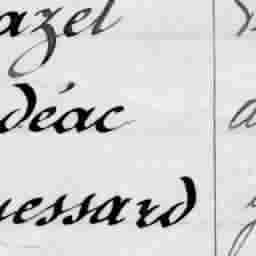 azel
déac
essard